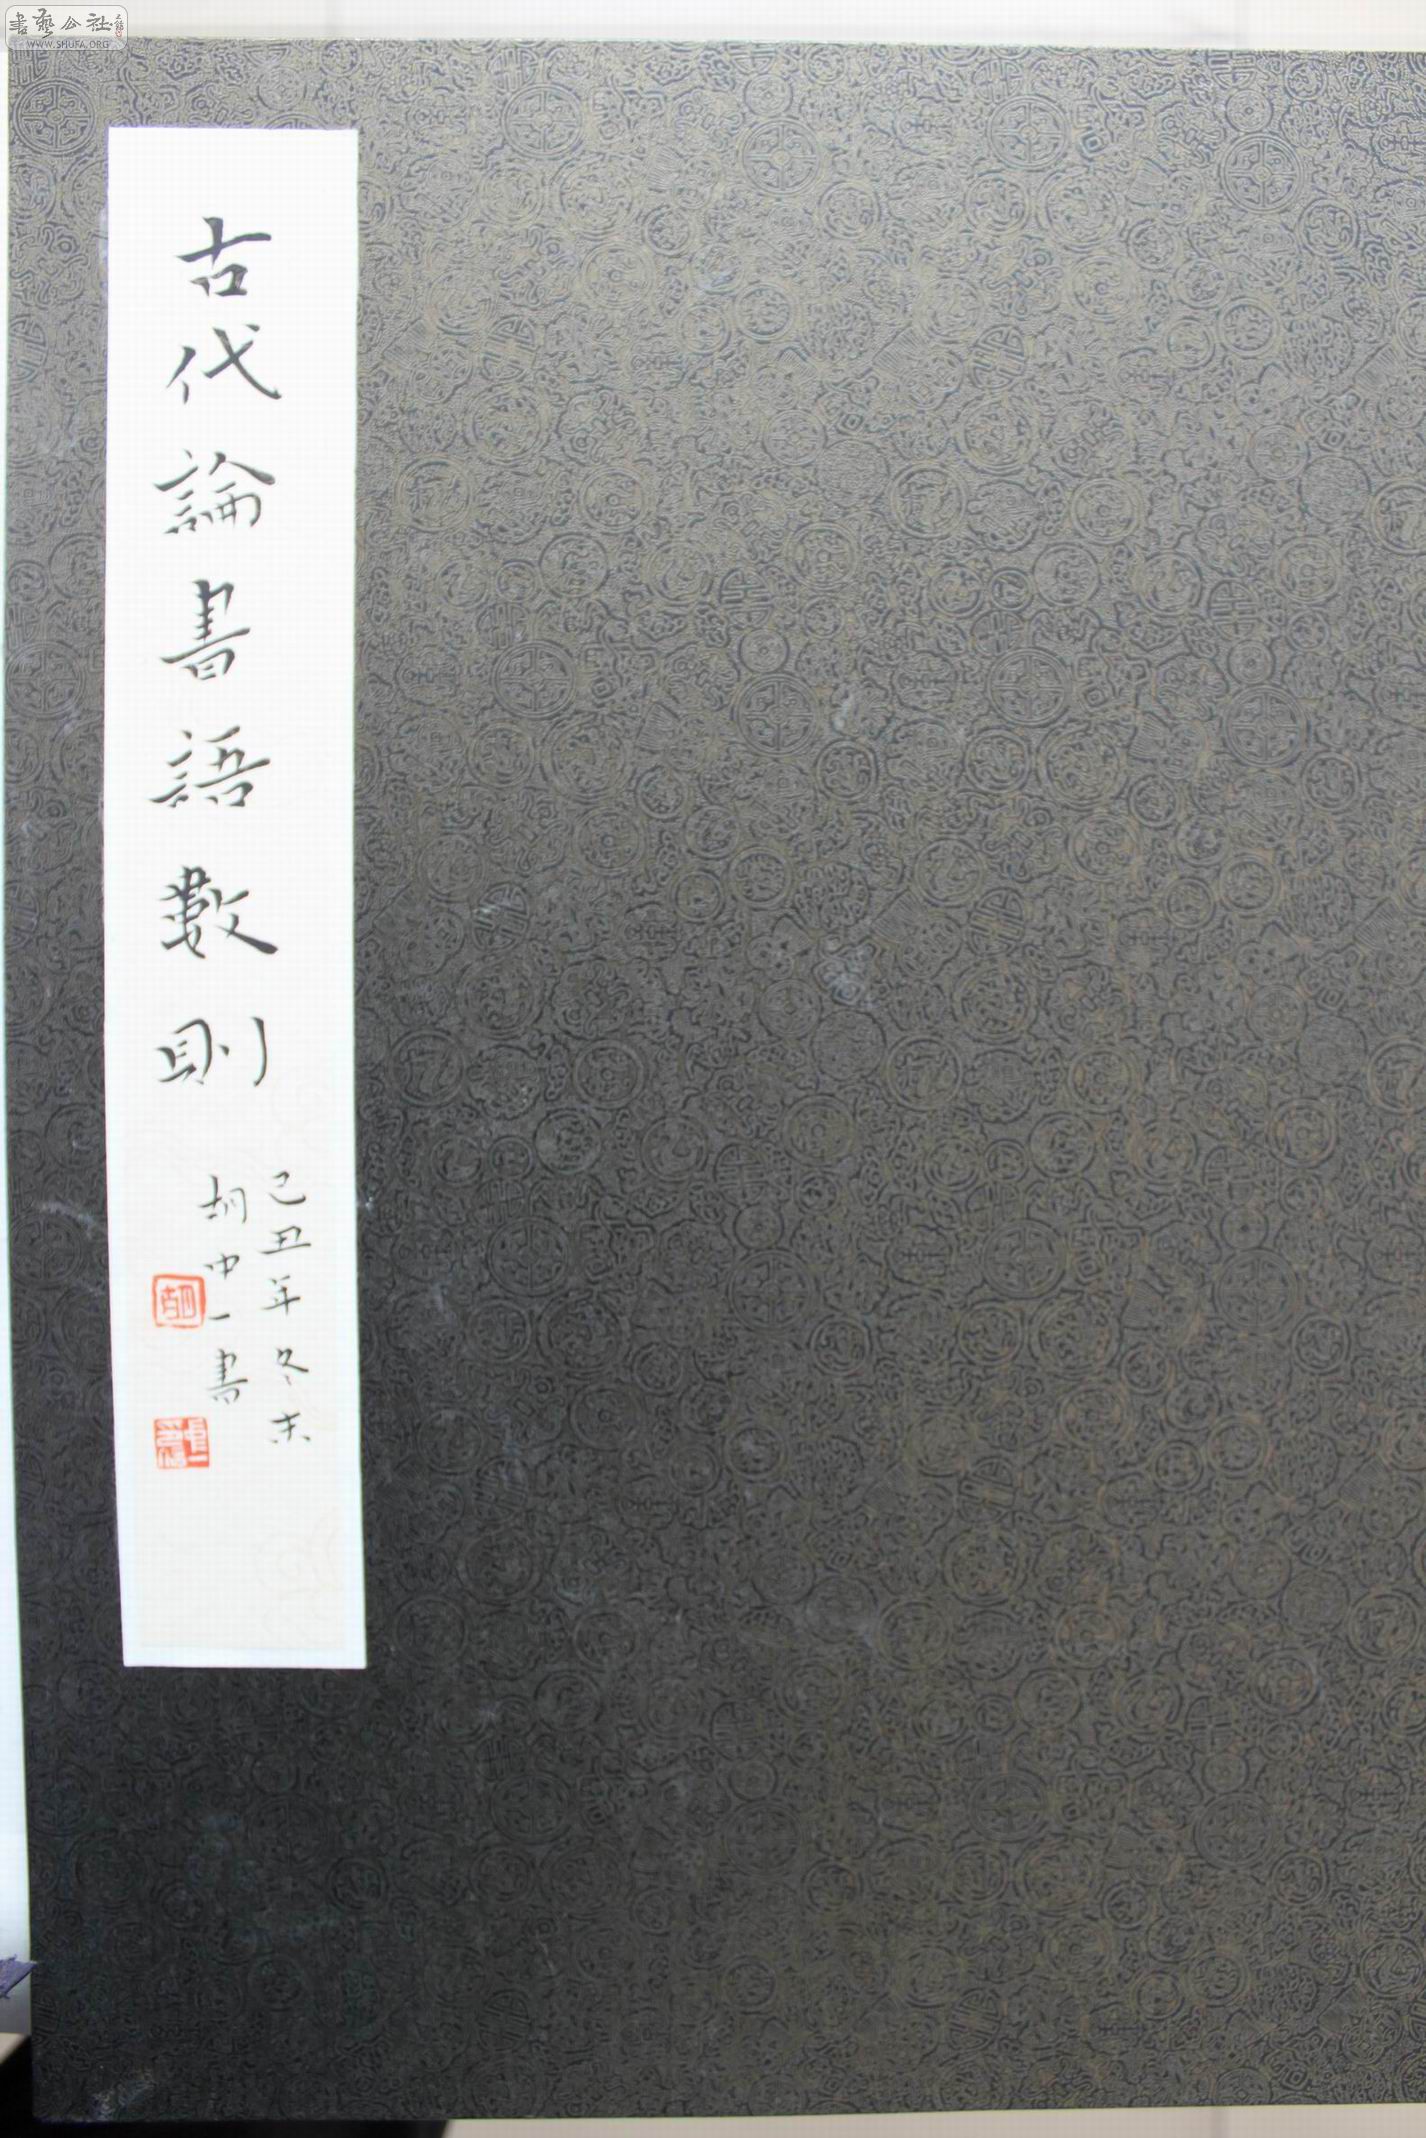 書藝公社
WWW.SHUFA.ORG
古代論書語數則
己丑年冬末
胡中一書
胡